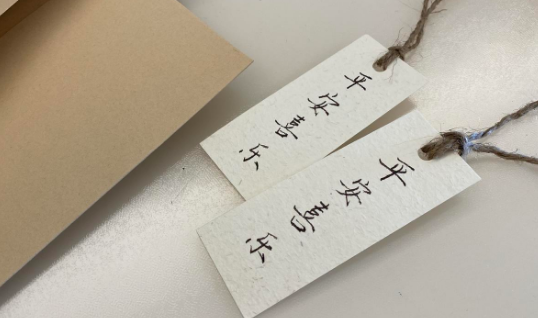 平安喜乐
平安喜乐